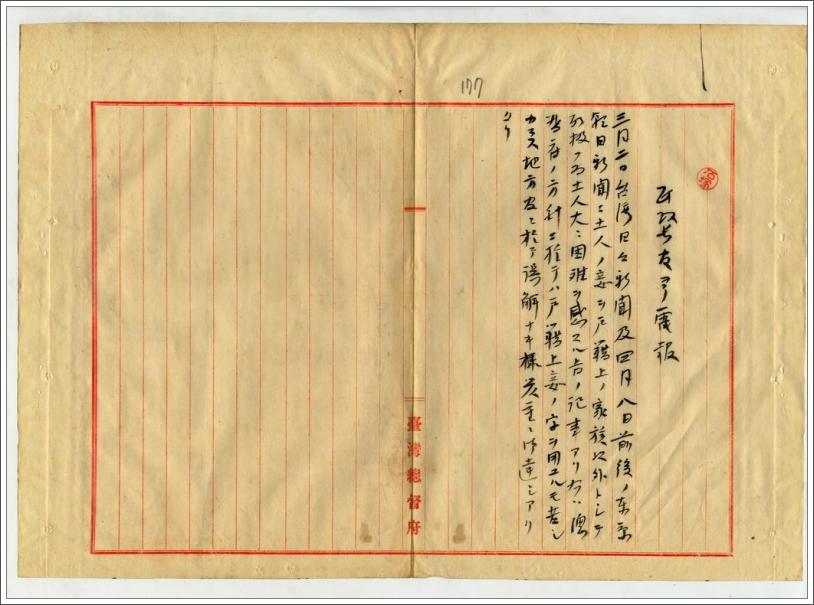 177
民政長官ヨリ電報
三月二日台湾日々新聞及四月八日前後ノ東京
朝日新聞ニ土人ノ妾ヲ戸籍上ノ家族以外トシテ
取扱フ為土人大ニ困難ヲ感スル旨ノ記事アリ右ハ
督府ノ方針ニ於テハ戸籍上妾ノ字ヲ用ユルモ差シ
カヘス地方官ニ於テ誤解ナキ様
臺灣總督府